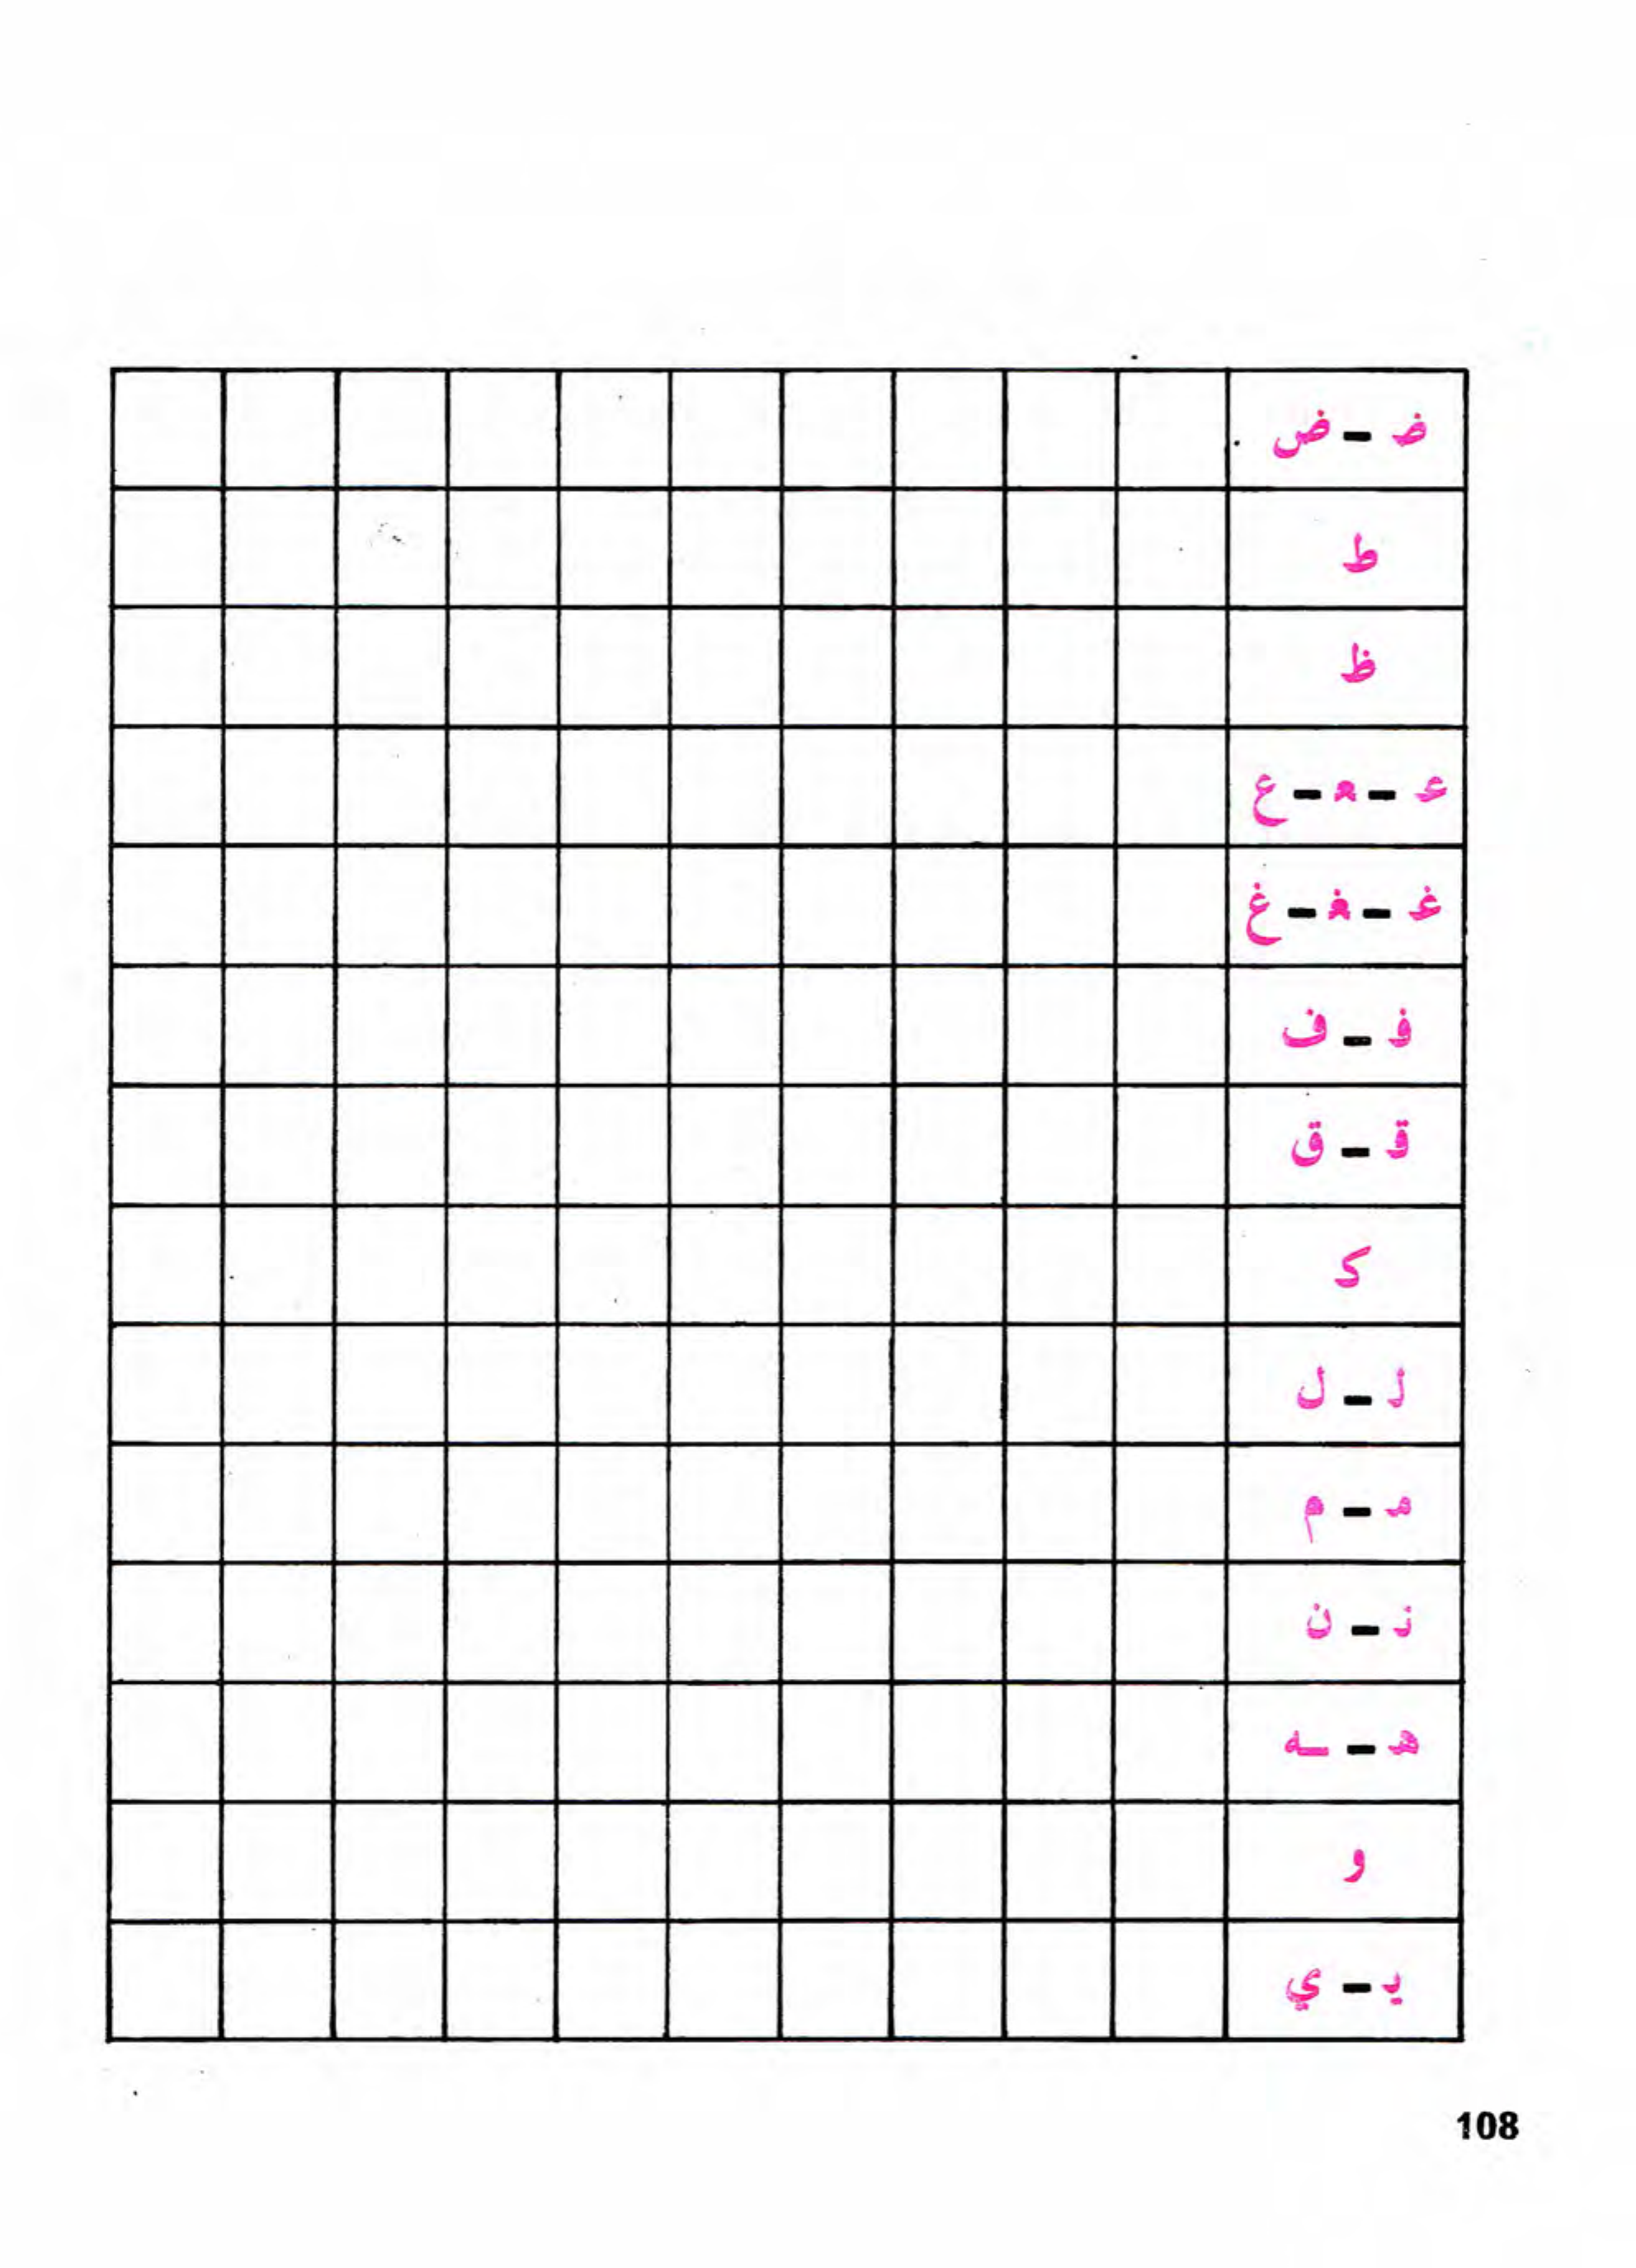 ضـ - ض
ط
ظ
عـ - ـعـ - ع
غـ - ـغـ - غ
فـ - ف
قـ - ق
كـ
لـ - ل
مـ - م
نـ - ن
هـ - ـه
و
يـ - ي
108